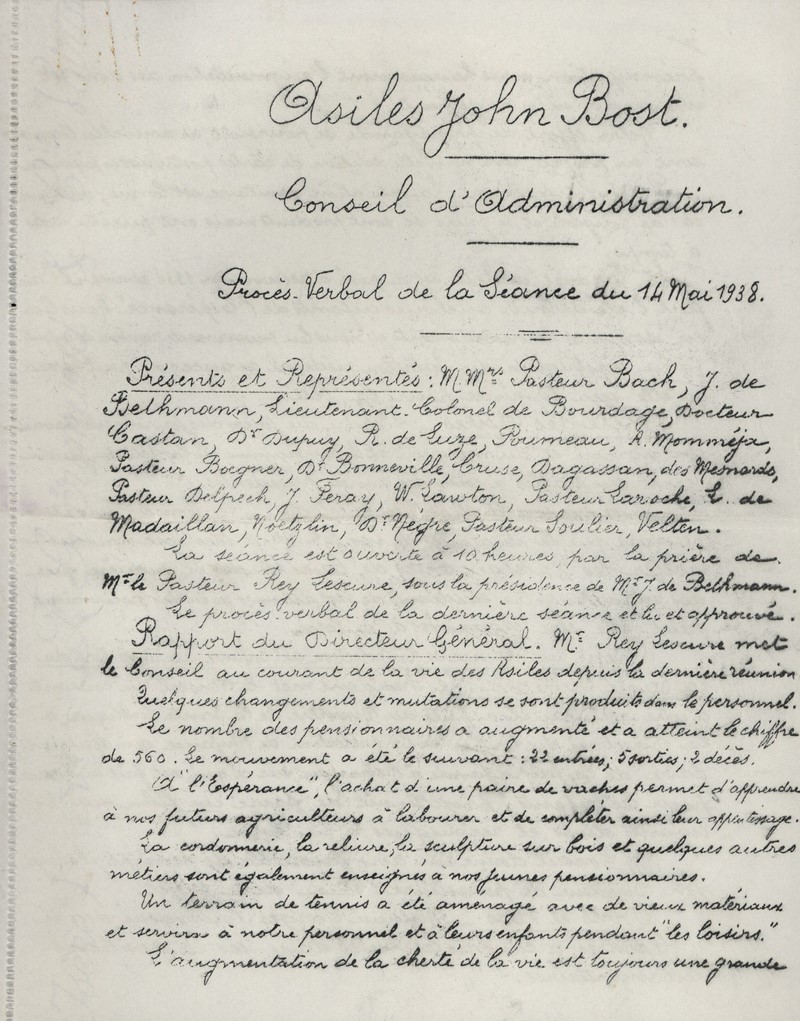 Asiles John Bost.
Conseil d'Administration.
Procès-Verbal de la Séance du 14 Mai 1938.
Présents et Représentés : M.Mrs Pasteur Bach, J. de
Bethmann, Lieutenant-Colonel de Bourdage, Docteur
Castan, Dr Dupuy, R. de Luze, Poumeau, A. Momméja,
Pasteur Boegner, Dr Bonneville, Cruse, Dagassan, des Mesnards,
Pasteur Delpech, J. Feray, W. Lawton, Pasteur Laroche, L. de
Madaillan, Noetzlin, Dr Nègre, Pasteur Soulier, Velten.
La séance est ouverte à 10 heures, par la prière de
Mr le Pasteur Rey Lescure, sous la présidence de Mr J. de Bethmann.
Le procès-verbal de la dernière séance et lu et approuvé.
Rapport du Directeur Général. Mr Rey Lescure met
le Conseil au courant de la vie des Asiles depuis la dernière réunion
Quelques changements et mutations se sont produits dans le personnel.
Le nombre des pensionnaires a augmenté et a atteint le chiffre
de 560. Le mouvement a été le suivant : 22 entrées; 5 sorties; 2 décès.
A "l'Espérance", l'achat d'une paire de vaches permet d'apprendre
à nos futurs agriculteurs à labourer et de compléter ainsi leur apprentissage.
La cordonnerie, la reliure, la sculpture sur bois et quelques autres
métiers sont également enseignés à nos jeunes pensionnaires.
Un terrain de tennis a été aménagé avec de vieux matériaux
et servira à notre personnel et à leurs enfants pendant "les loisirs."
L'augmentation de la cherté de la vie est toujours une grande